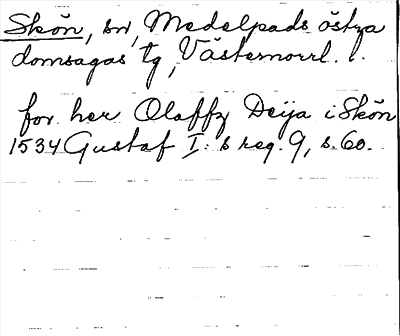 Skön, sn, Medelpads östra
domsagas tg, Västernorrl. l.
for her Oloffz Deija i Skön
1534 Gustaf I:s reg. 9, s. 60.